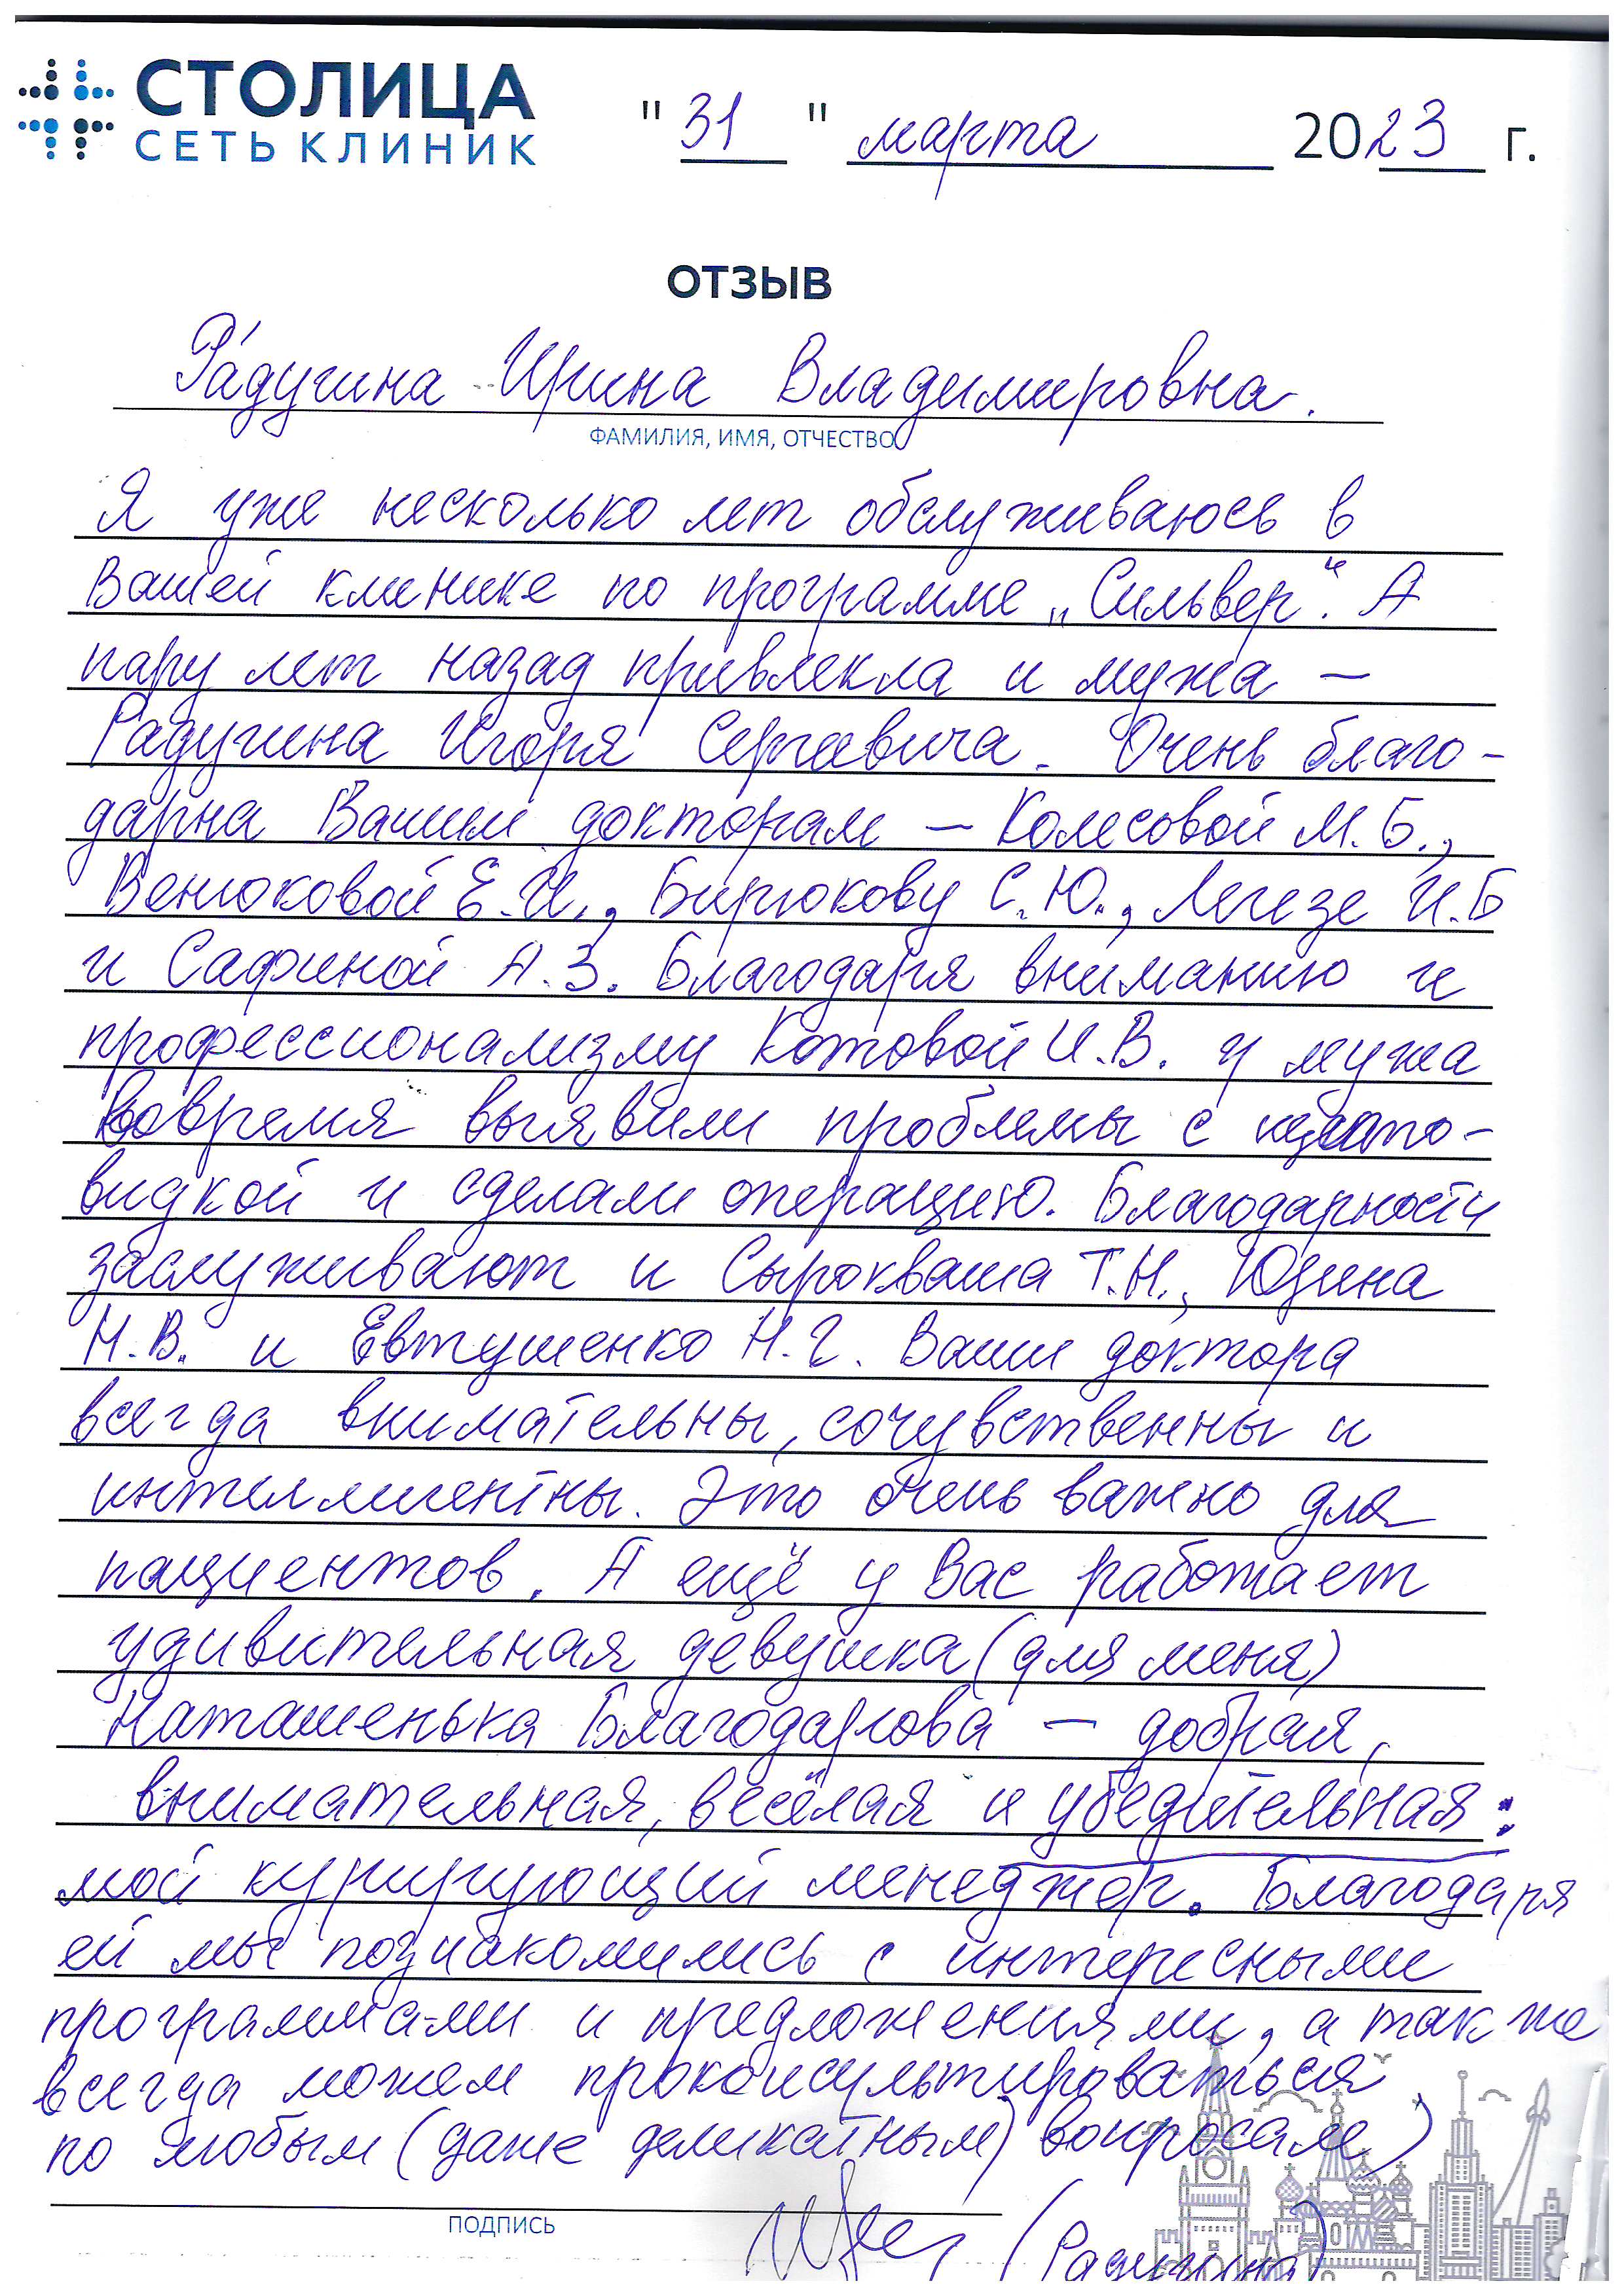 СТОЛИЦА
СЕТЬ КЛИНИК
" 31 " марта 2023 г.
ОТЗЫВ
Радугина Ирина Владимировна.
ФАМИЛИЯ, ИМЯ, ОТЧЕСТВО
Я уже несколько лет обслуживаюсь в
Вашей клинике по программе „Сильвер“. А
пару лет назад привлекла и мужа –
Радугина Игоря Сергеевича. Очень благо-
дарна Вашим докторам – Колесовой М.Б.,
Венюковой Е.И., Бирюкову С.Ю., Легезе И.Б
и Сафиной А.З. Благодаря вниманию и
профессионализму Котовой И.В. у мужа
вовремя выявили проблемы с щито-
видкой и сделали операцию. Благодарности
заслуживают и Сырокваша Т.Н., Юдина
Н.В. и Евтушенко Н.Г. Ваши доктора
всегда внимательны, сочувственны и
интеллигентны. Это очень важно для
пациентов. А ещё у Вас работает
удивительная девушка (для меня)
Наташенька Благодарова – добрая,
внимательная, весёлая и убедительная:
мой курирующий менеджер. Благодаря
ей мы познакомились с интересными
программами и предложениями, а так же
всегда можем проконсультироваться
по любым (даже деликатным) вопросам)
ПОДПИСЬ
(Радугина)